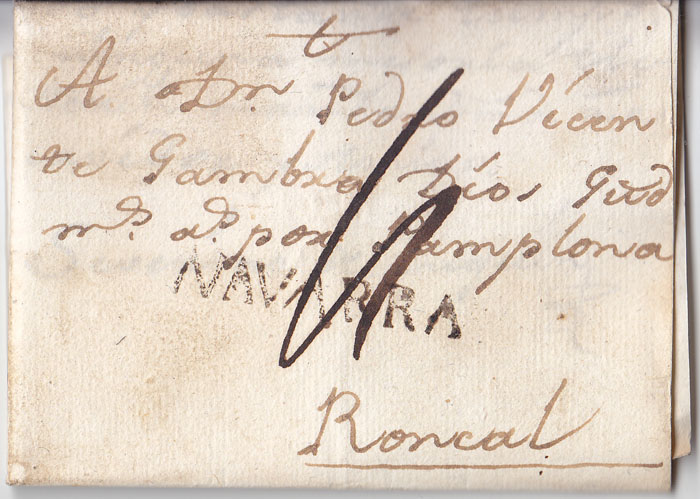 A Dn. Pedro Vicen
te Gambra Dios Gud
ms. as. por Pamplona
NAVARRA
Roncal